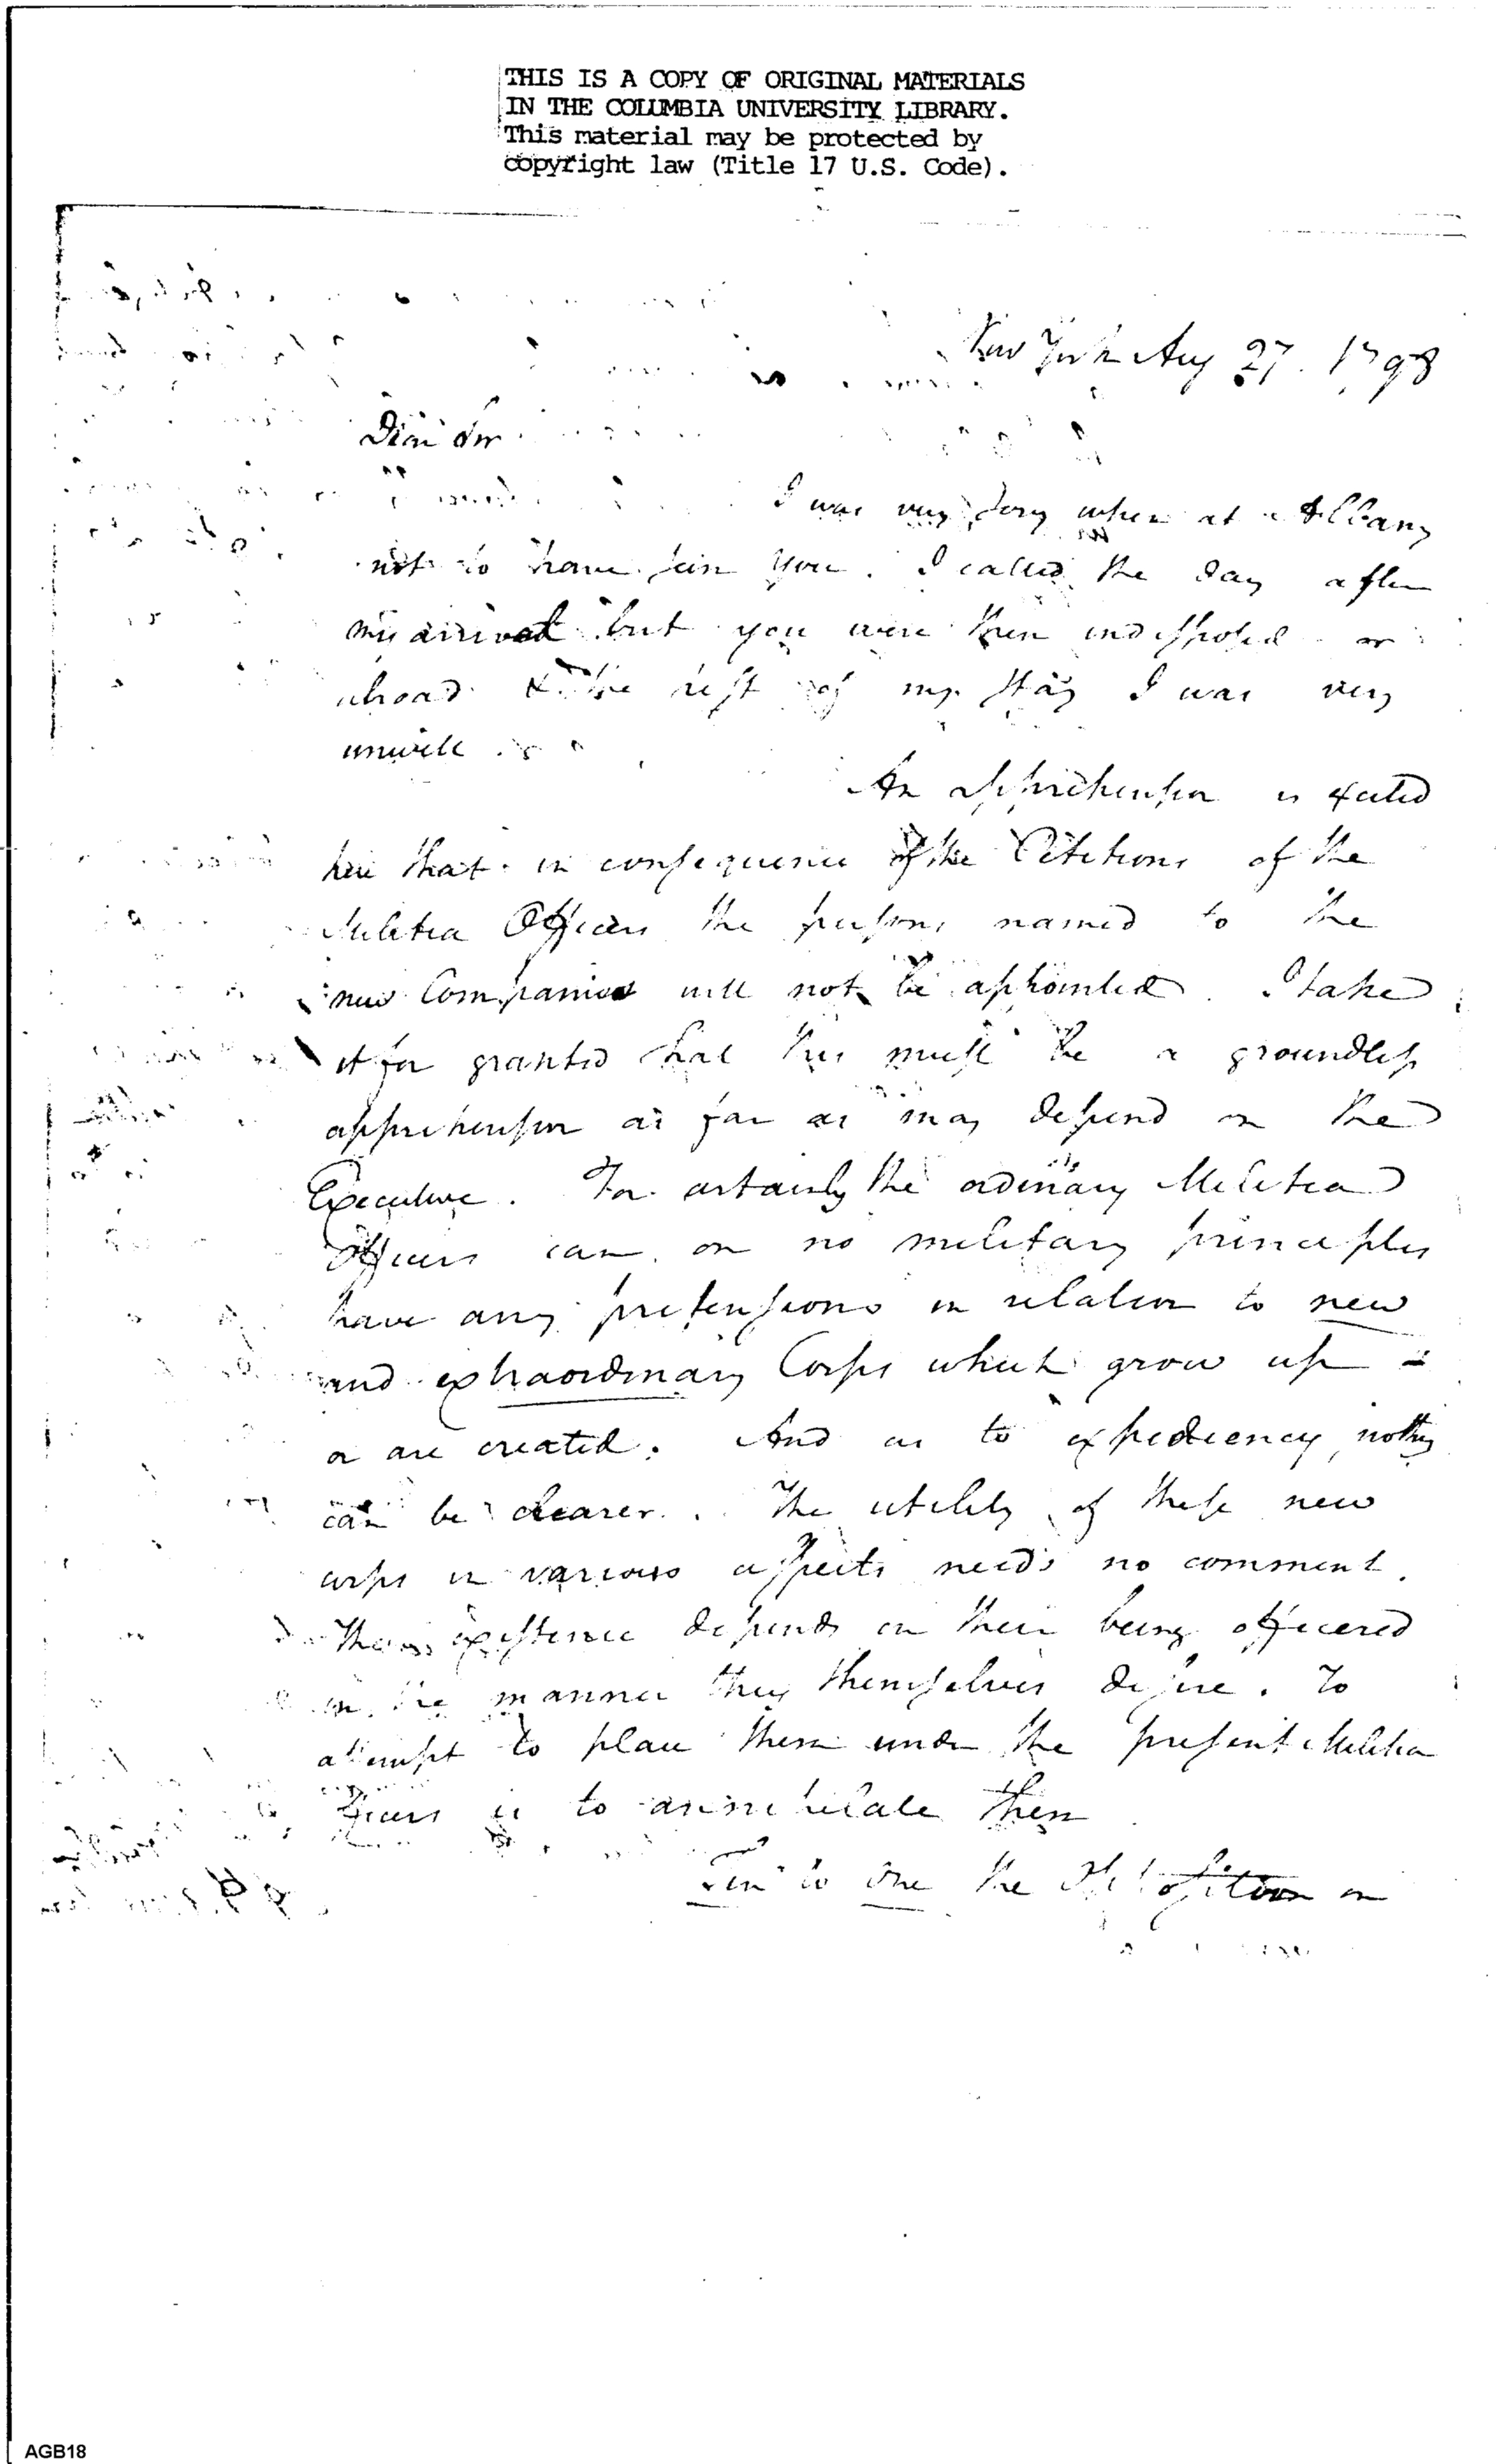 THIS IS A COPY OF ORIGINAL MATERIALS
IN THE COLUMBIA UNIVERSITY LIBRARY.
This material may be protected by
copyright law (Title 17 U.S. Code).
New York Aug 27. 1798
Dear Sir
I was very sorry when at Albany
not to have seen you. I called the day after
my arrival but you were then indisposed or
abroad & the rest of my stay I was very
unwell
An apprehension is excited
here that in consequence of the Petitions of the
Militia Officers the persons named to the
new Companies will not be appointed. I take
it for granted that this must be a groundless
apprehension as far as may depend on the
Executive. For certainly the ordinary Militia
Officers can on no military principles
have any pretensions in relation to new
and extraordinary Corps which grow up
or are created. And as to expediency, nothing
can be clearer. The utility of these new
corps in various aspects needs no comment.
Their existence depends on their being officered
in the manner they themselves desire. To
attempt to place them under the present Militia
Officers is to annihilate them
Ten to one the on
AGB18